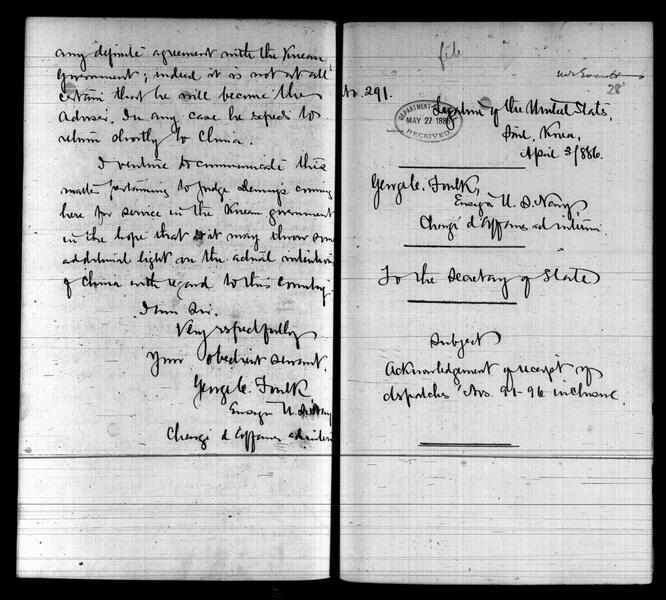 any definite agreement with the Korean
Government; indeed it is not at all
certain that he will become the
Adviser. In any case he expects to
return shortly to China.
I venture to communicate this
matter pertaining to Judge Denny's coming
here for service in the Korean government
in the hope that it may throw some
additional light on the actual intention
of China with regard to this country.
I am Sir.
Very respectfully
Your obedient servant.
George C. Foulk
Ensign U. S. Navy
Chargé d'Affaires ad interim
file
28
No. 291.
Legation of the United States,
Söul, Korea,
April 3/1886.
DEPARTMENT OF STATE
MAY 27 1886
RECEIVED.
George C. Foulk,
Ensign U. S. Navy,
Chargé d'Affaires ad interim.
To the Secretary of State
Subject
Acknowledgement of receipt of
dispatches Nos. 91-96 inclusive.